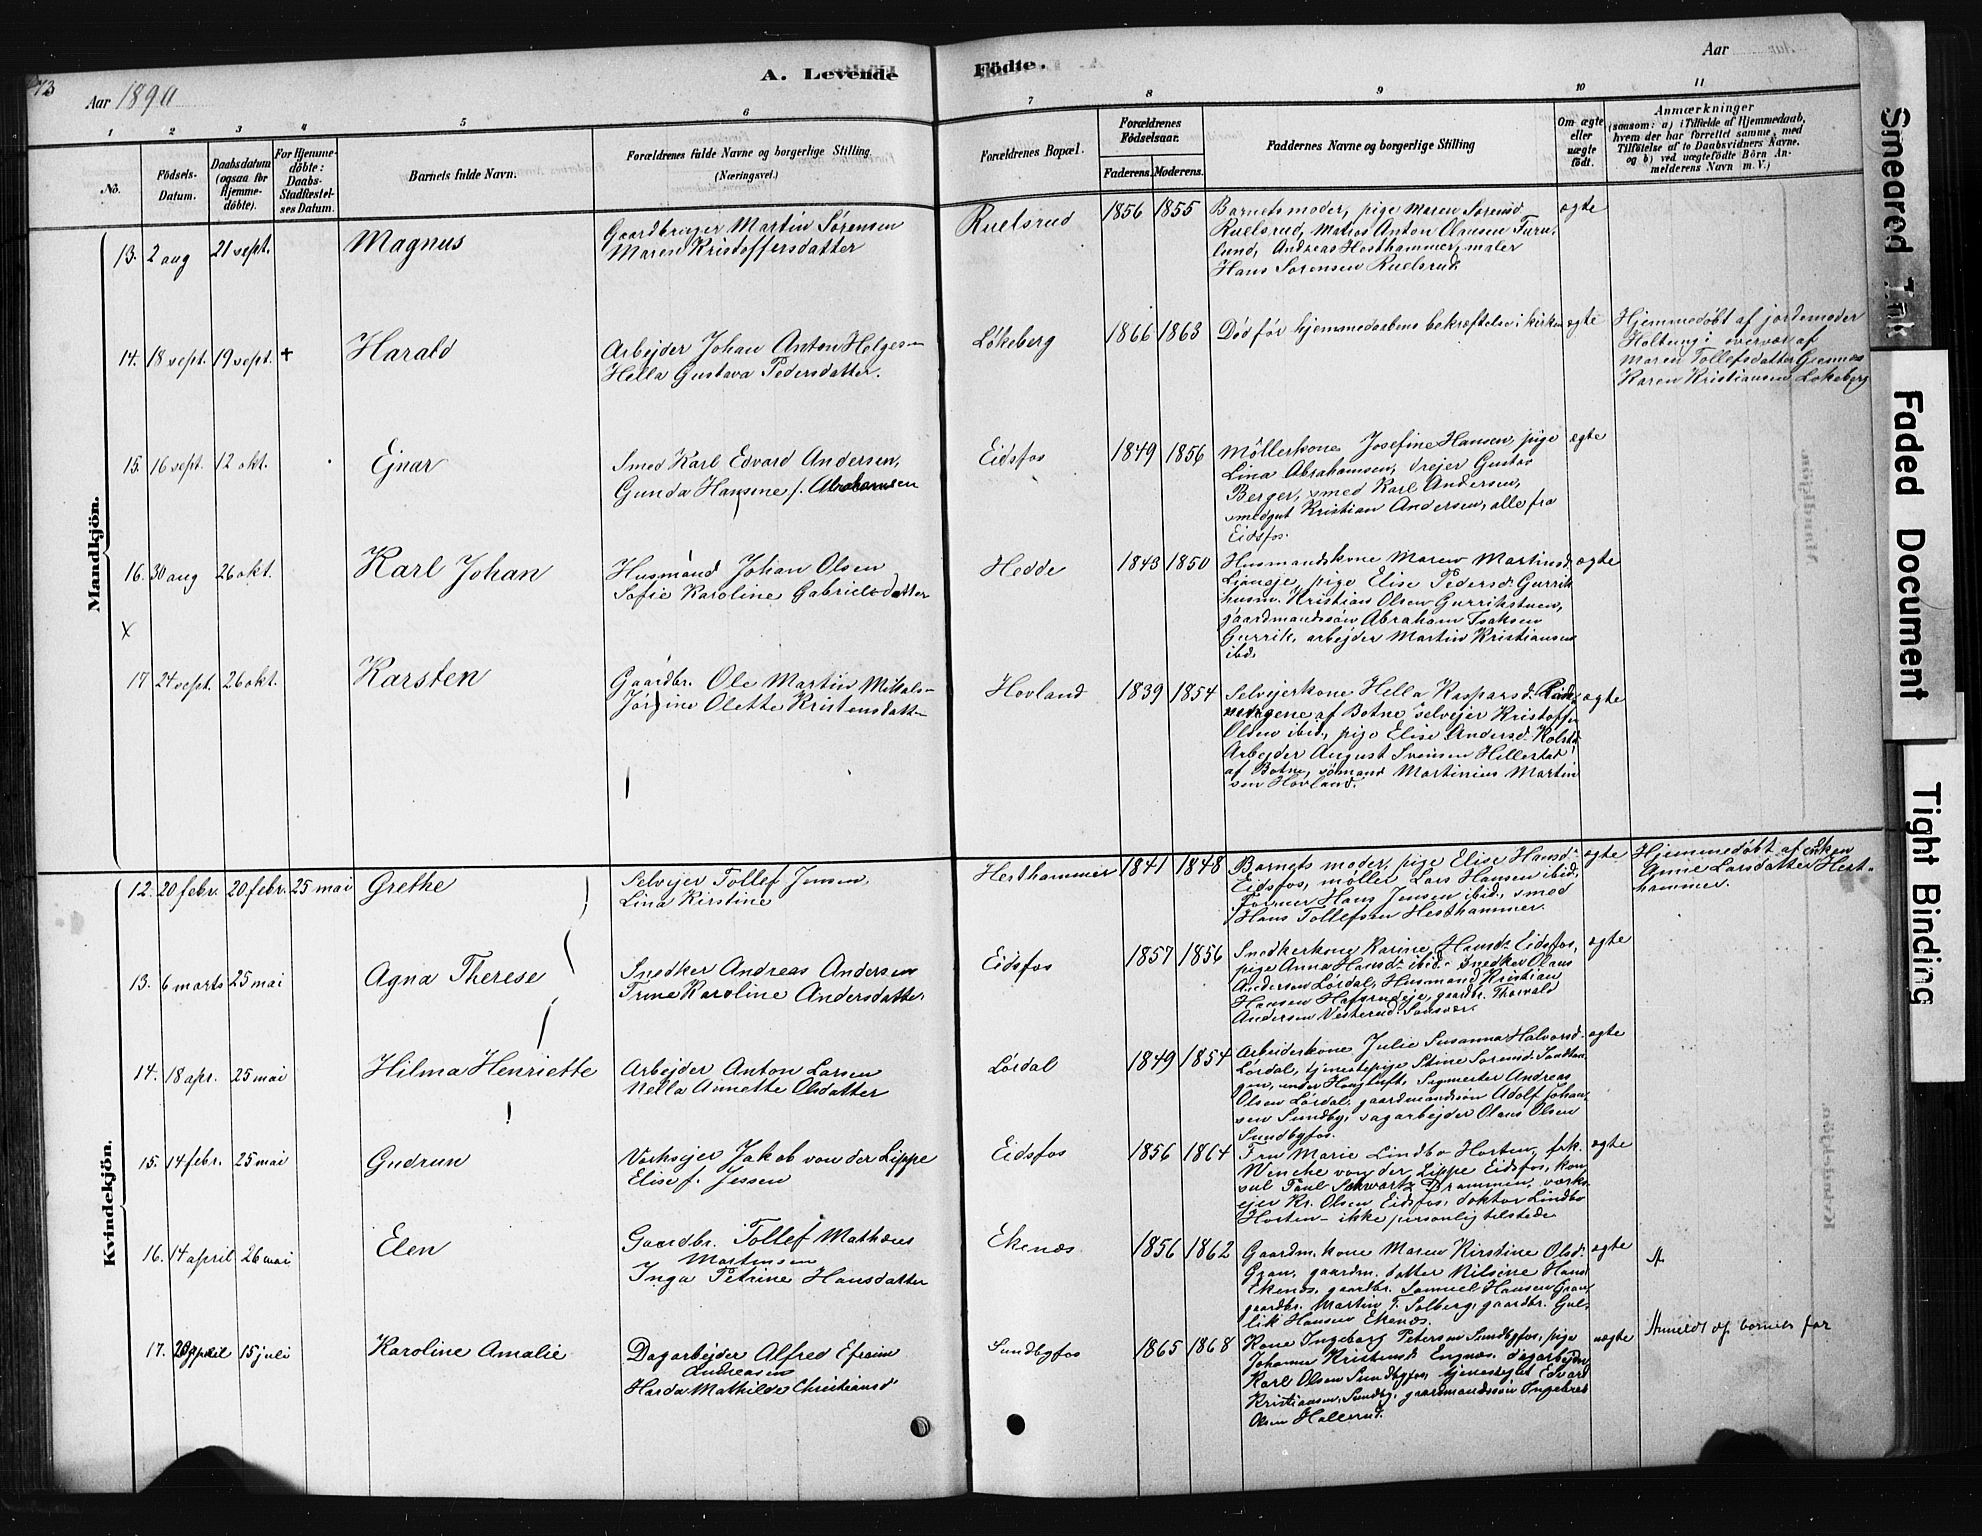 73
Aar 1890
A. Levende
Födte.
Aar
1 2 3 4 5 6 7 8 9 10 11
No.
Födsels-Datum.
Daabsdatum (ogsaa for Hjemme-döbte).
For Hjemme-döbte: Daabs-Stadfæstel-ses Datum.
Barnets fulde Navn.
Forældrenes fulde Navne og borgerlige Stilling. (Næringsvei.)
Forældrenes Bopæl.
Forældrenes Födselsaar.
Faderens. Moderens.
Faddernes Navne og borgerlige Stilling
Om ægte eller uægte födt.
Anmærkninger
(saasom: a) i Tilfælde af Hjemmedaab,
hvem der har forrettet samme, med
Tilföielse af to Daabsvidners Navne,
og b) ved uægtefödte Börn An-
melderens Navn m. V.)
Mandkjön.
13. 2 aug 21 sept. Magnus
Gaardbruger Martin Sørensen
Maren Kristoffersdatter
Ruelsrud 1856 1855
Barnets moder, pige Maren Sorensd
Ruelsrud, Anton Olausen Furu,
lund, Andreas Hesthammer, maler
Hans Sorensen Ruelsrud.
ægte
14. 18 sept. 19 sept. + Harald
Arbejder Johan Anton Helges-
Hella Gustava Pedersdatter.
Løkeberg 1866 1863
Død før hjemmedaabens bekræftelse i kirken ægte
Hjemmedøbt af jordemoder
Holtung i overvær af
Maren Tollefsdatter Grennes
Karen Kristiansen Løkeberg
15. 16 sept. 12 okt. Ejnar
Smed Karl Edvard Andersen,
Gunda Hansine f. Abrahamsen
Eidsfos 1849 1856
Møllerkone Josefine Hansen, pige
Lina Abrahamsen, drejer Gustav
Berger, smed Karl Andersen,
smedgut Kristian Andersen, alle fra
Eidsfos.
ægte
16. 30 aug 26 okt. Karl Johan
Husmand Johan Olsen
Sofie Karoline Gabrielsdatter
Hedde 1843 1850
Husmandskone Maren Martinsd.
pige Elise Pedersd. Gurrik
husm. Kristian Olsen Gurrikstuen,
gaardmandssøn Abraham Isaksen
Gurrik, arbejder Martin Kristiansen
ibid.
ægte
X
17 24 sept. 26 okt. Karsten
Gaardbr. Ole Martin Mikals-
Jørgine Olette Kristensdatter
Hovland 1839 1854
Selvejerkone Hella Kaspersd.
af Botne, selvejer Kristoffer
Olsen ibid, pige Elise Andersd. Kolstad
Arbejder August Svensen Hillestad
af Botne, sømand Martinius Martin
sen Hovland.
ægte
Kvindekjön.
12. 20 febr. 20 febr. 25 mai Grethe
Selvejer Tollef Jensen,
Lina Kirstine
Hesthammer 1841 1848
Barnets moder, pige Elise Hansd.
Eidsfos, møller Lars Hansen ibid,
Former Hans Jensen ibid, smed
Hans Tollefsen Hesthammer.
ægte
Hjemmedøbt af enken
Anne Larsdatter Hest-
hammer.
13. 6 marts 25 mai Agna Therese
Snedker Andreas Andersen
Trine Karoline Andersdatter
Eidsfos 1857 1856
Snedkerkone Karine Hansd. Eidsfos,
pige Anna Hansd. ibid. snedker Olaus
Andersen Lørdal, Husmand Kristian
Hansen Hafsrudeje, gaardbr. Thorvald
Andersen Vesterud Sandsvær.
ægte
14. 18 apr. 25 mai Hilma Henriette
Arbejder Anton Larsen
Nella Annette Olsdatter
Lørdal 1849 1854
Arbeiderkone Julie Susanna Halvorsd
Lørdal, tjenestepige Stine Sorensd.
Sagmester Andreas
Olsen Lørdal, gaardmandssøn Adolf Johan,
sen Sundby, sagarbejder Olaus Olsen
Sundbyfos.
ægte
15. 14 febr. 25 mai Gudrun
Verksejer Jakob von der Lippe
Elise f. Jessen
Eidsfos 1856 1864
Fru Marie Lindbo Horten, frk.
Wenche von der Lippe Eidsfos, kon
sul Paul Schwartz Drammen, værks
ejer Kr. Olsen Eidsfos, doktor Lindbo
Horten - ikke personlig tilstede
ægte
16. 14 april 26 mai Elen
Gaardbr. Tollef Mathæus
Martinsen
Inga Petrine Hansdatter
Ekenæs 1856 1862
Gaardm. kone Maren Kirstine Olsd.
Gran, gaardm. datter Nilsine Hans
Ekenæs, gaardbr. Samuel Hansen Gran,
gaardbr. Martin T. Solberg, gaardbr. Gul,
lik Hansen Ekenæs.
ægte
A
17. 23 april 15 juli Karoline Amalie
Dagarbejder Alfred Efraim
Andreasen
Harda Mathilde Christiansd
Sundbyfos 1865 1868
Kone Ingeborg Petersen Sundbyfos, pige
Johanne Kristensd. Engnæs, dagarbejder
Karl Olsen Sundbyfos, tjenestegut Edvard
Kristiansen, Sundby, gaardmandssøn Ingebret
Olsen Hallerud.
uægte
Anmeldt af barnets far
Smeared Ink
Faded Document
Tight Binding